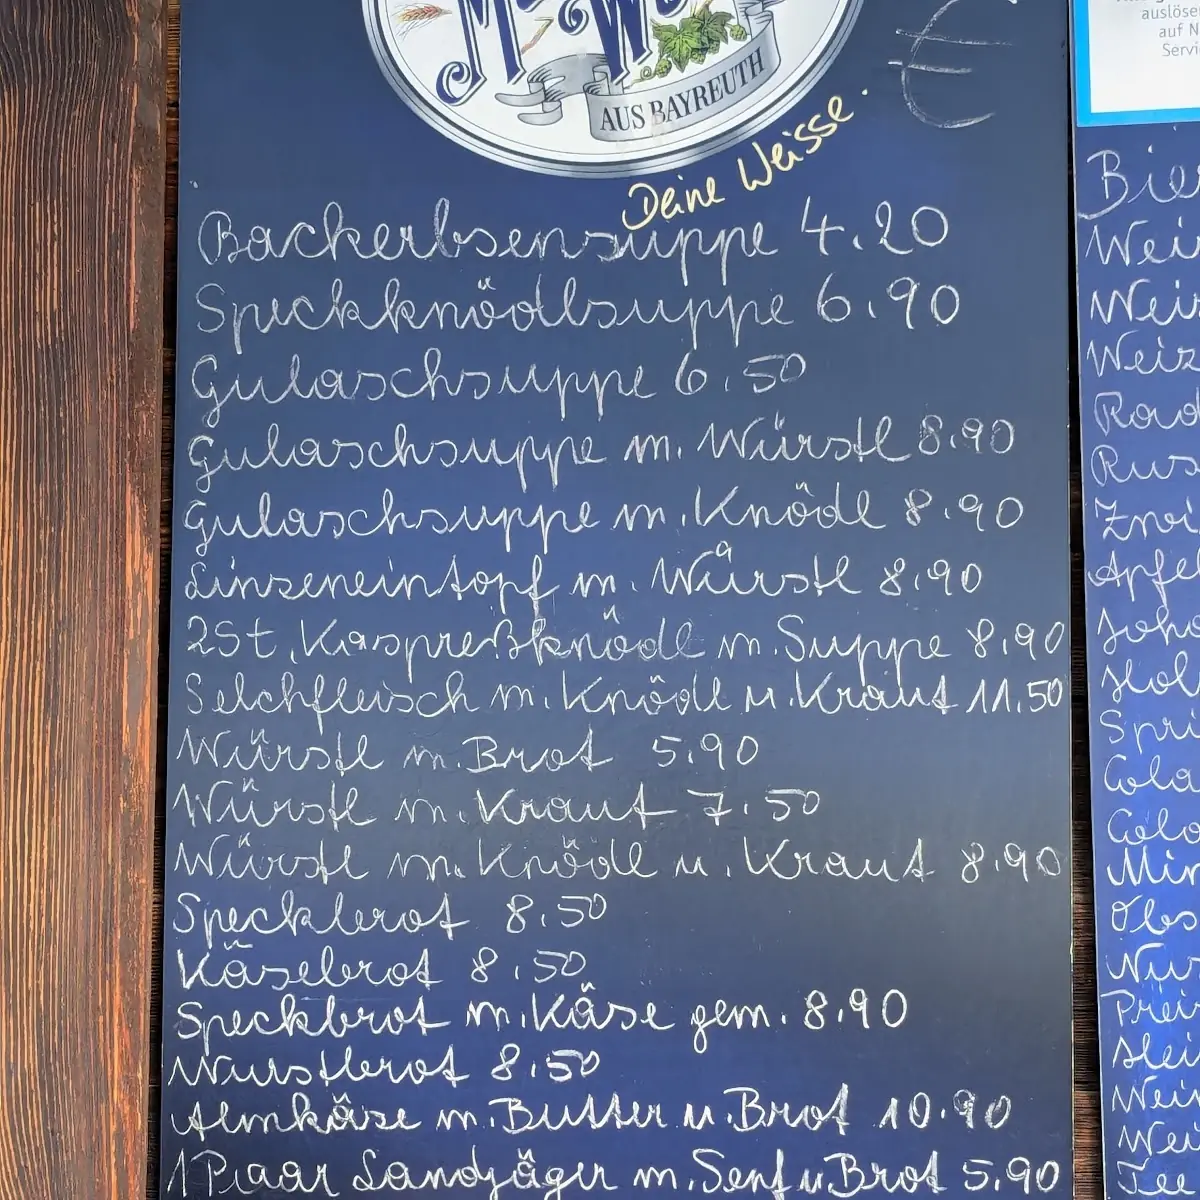 AUS BAYREUTH
Deine Weisse.
€
Backerbsensuppe 4.20
Speckknödlsuppe 6.90
Gulaschsuppe 6.50
Gulaschsuppe m. Würstl 8.90
Gulaschsuppe m. Knödl 8.90
Linseneintopf m. Würstl 8.90
2St. Kaspreßknödl m. Suppe 8.90
Selchfleisch m. Knödl u. Kraut 11.50
Würstl m. Brot 5.90
Würstl m. Kraut 7.50
Würstl m. Knödl u. Kraut 8.90
Speckbrot 8.50
Käsebrot 8.50
Speckbrot m. Käse gem. 8.90
Wurstbrot 8.50
Almkäse m. Butter u Brot 10.90
1 Paar Landjäger m. Senf u Brot 5.90
auslöse
auf N
Servi
Bier
Wei
Wei
Weiz
Rad
Rus
Zwi
Apfel
Joha
Hol
Spri
Cola
Cola
Min
Obs
Nus
Prei
Hei
Wei
Wei
Tee